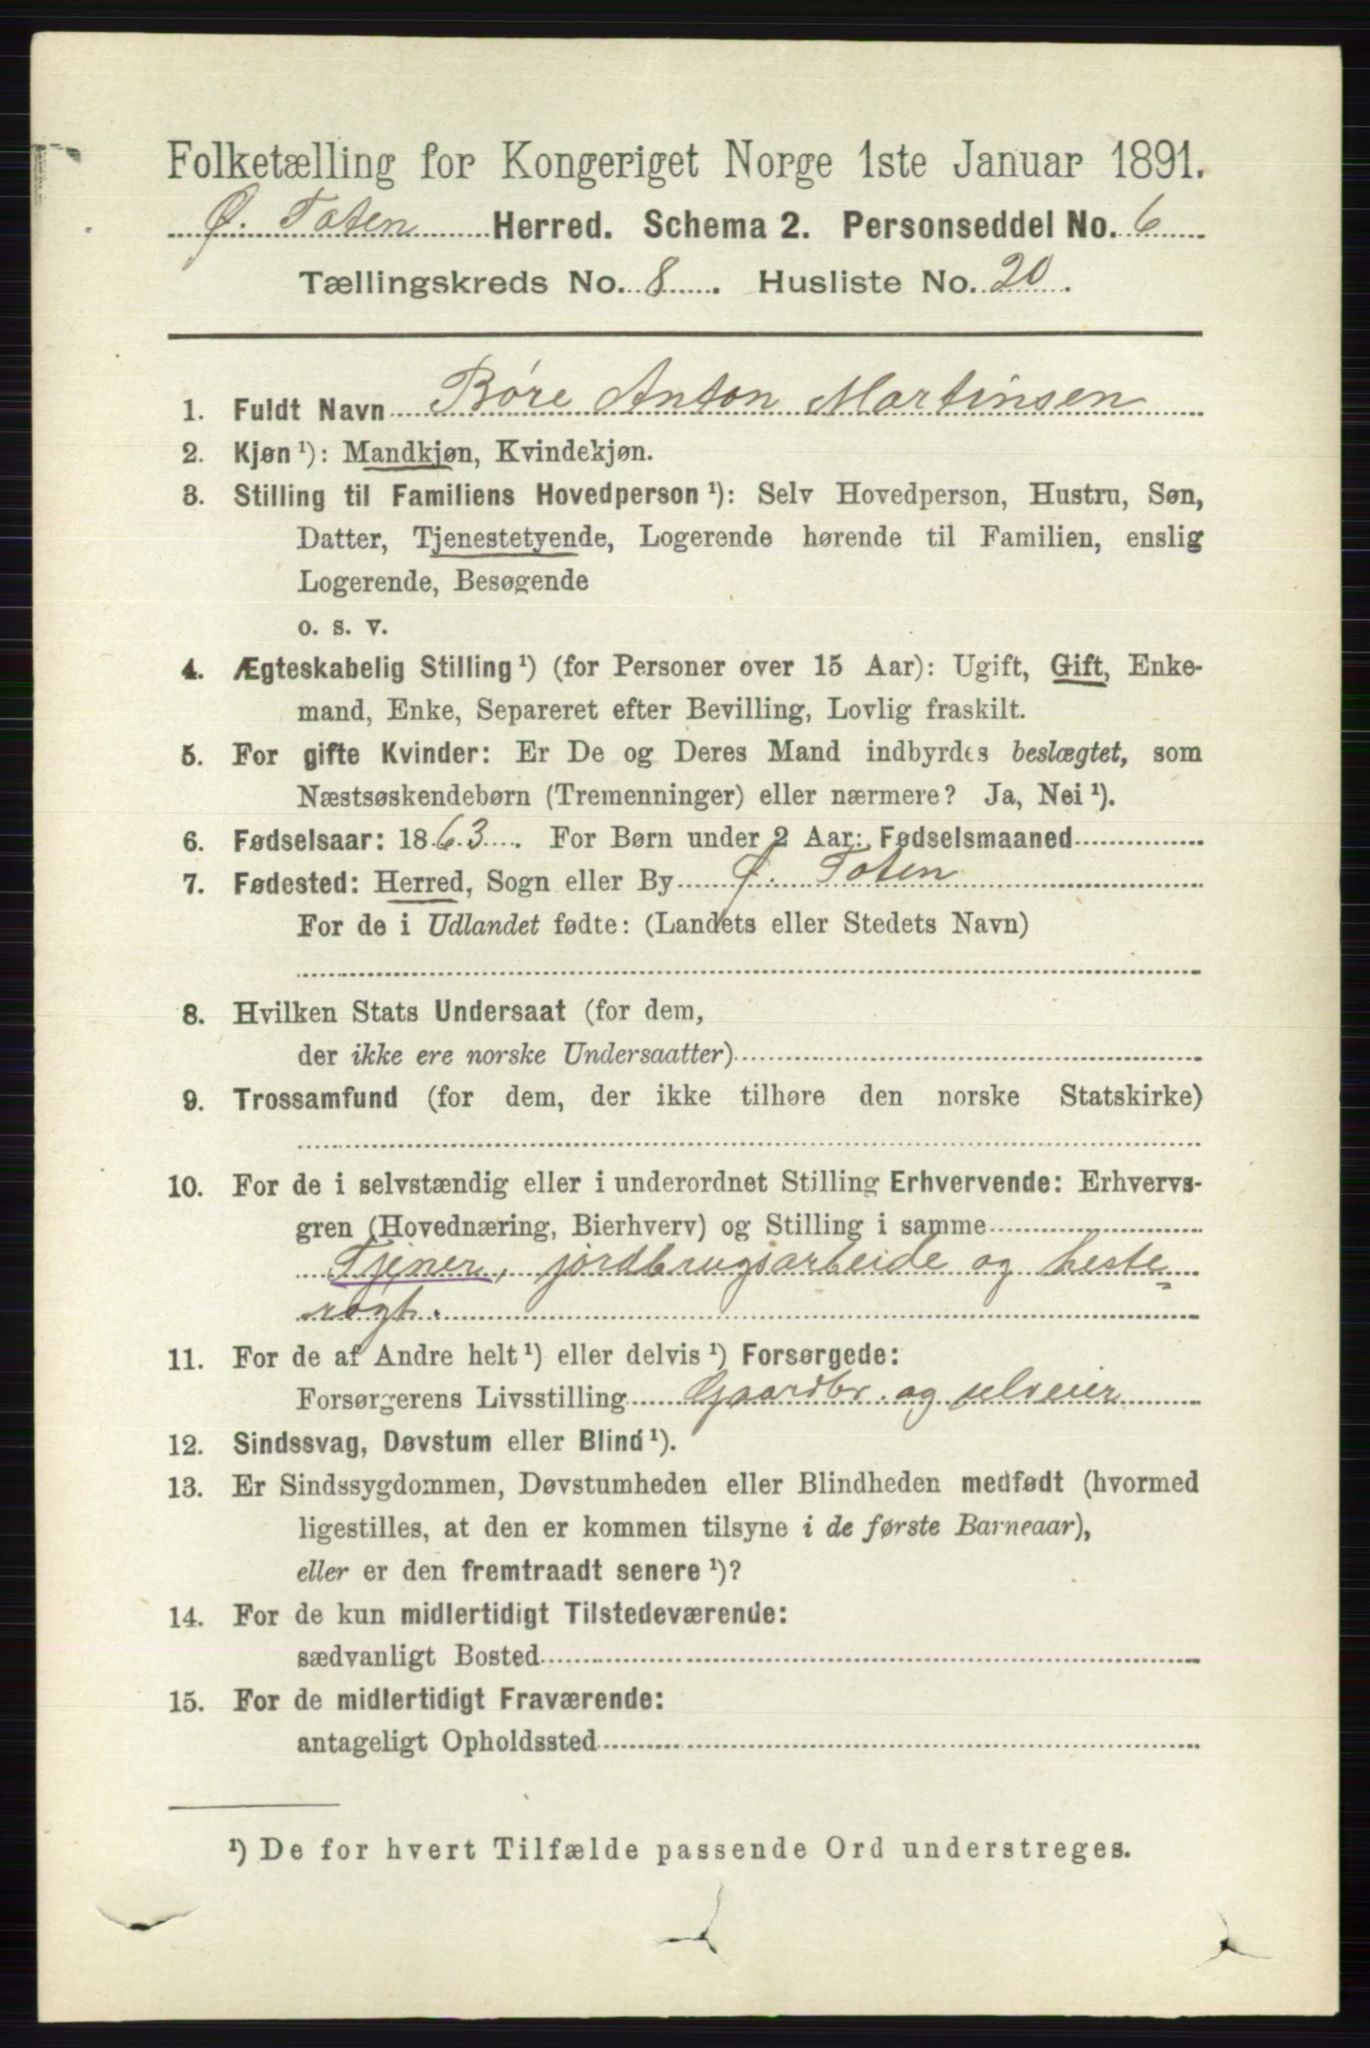 Folketælling for Kongeriget Norge 1ste Januar 1891.
Ø. Toten Herred. Schema 2. Personseddel No. 6
Tællingskreds No. 8. Husliste No. 20.
1. Fuldt Navn Børe Anton Martinsen
2. Kjøn ¹): Mandkjøn, Kvindekjøn.
3. Stilling til Familiens Hovedperson ¹): Selv Hovedperson, Hustru, Søn,
Datter, Tjenestetyende, Logerende hørende til Familien, enslig
Logerende, Besøgende
o. s. v.
4. Ægteskabelig Stilling ¹) (for Personer over 15 Aar): Ugift, Gift, Enke-
mand, Enke, Separeret efter Bevilling, Lovlig fraskilt.
5. For gifte Kvinder: Er De og Deres Mand indbyrdes beslægtet, som
Næstsøskendebørn (Tremenninger) eller nærmere? Ja, Nei ¹).
6. Fødselsaar: 1863. For Børn under 2 Aar: Fødselsmaaned
7. Fødested: Herred, Sogn eller By Ø. Toten
For de i Udlandet fødte: (Landets eller Stedets Navn)
8. Hvilken Stats Undersaat (for dem,
der ikke ere norske Undersaatter)
9. Trossamfund (for dem, der ikke tilhøre den norske Statskirke)
10. For de i selvstændig eller i underordnet Stilling Erhvervende: Erhvervs-
gren (Hovednæring, Bierhverv) og Stilling i samme
Tjener, jordbrugsarbeide og heste=
røgt.
11. For de af Andre helt ¹) eller delvis ¹) Forsørgede:
Forsørgerens Livsstilling Gaardbr. og selveier
12. Sindssvag, Døvstum eller Blind ¹).
13. Er Sindssygdommen, Døvstumheden eller Blindheden medfødt (hvormed
ligestilles, at den er kommen tilsyne i de første Barneaar),
eller er den fremtraadt senere ¹)?
14. For de kun midlertidigt Tilstedeværende:
sædvanligt Bosted
15. For de midlertidigt Fraværende:
antageligt Opholdssted
¹) De for hvert Tilfælde passende Ord understreges.